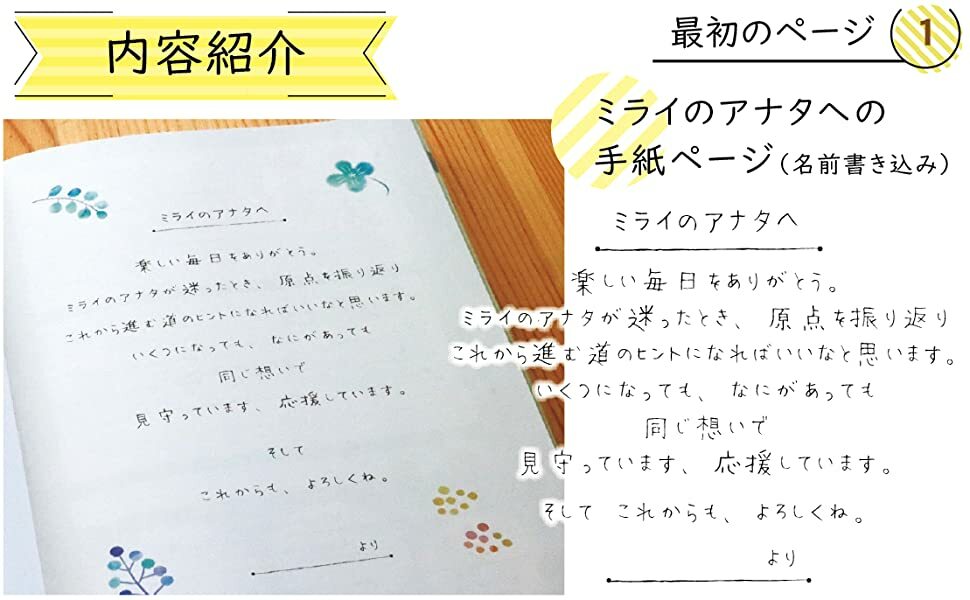 内容紹介
最初のページ 1
ミライのアナタへの
手紙ページ(名前書き込み)
ミライのアナタへ
楽しい毎日をありがとう。
ミライのアナタが迷ったとき、原点を振り返り
これから進む道のヒントになればいいなと思います。
いくつになっても、なにがあっても
同じ想いで
見守っています、応援しています。
そして
これからも、よろしくね。
より
ミライのアナタへ
楽しい毎日をありがとう。
ミライのアナタが迷ったとき、原点を振り返り
これから進む道のヒントになればいいなと思います。
いくつになっても、なにがあっても
同じ想いで
見守っています、応援しています。
そして これからも、よろしくね。
より